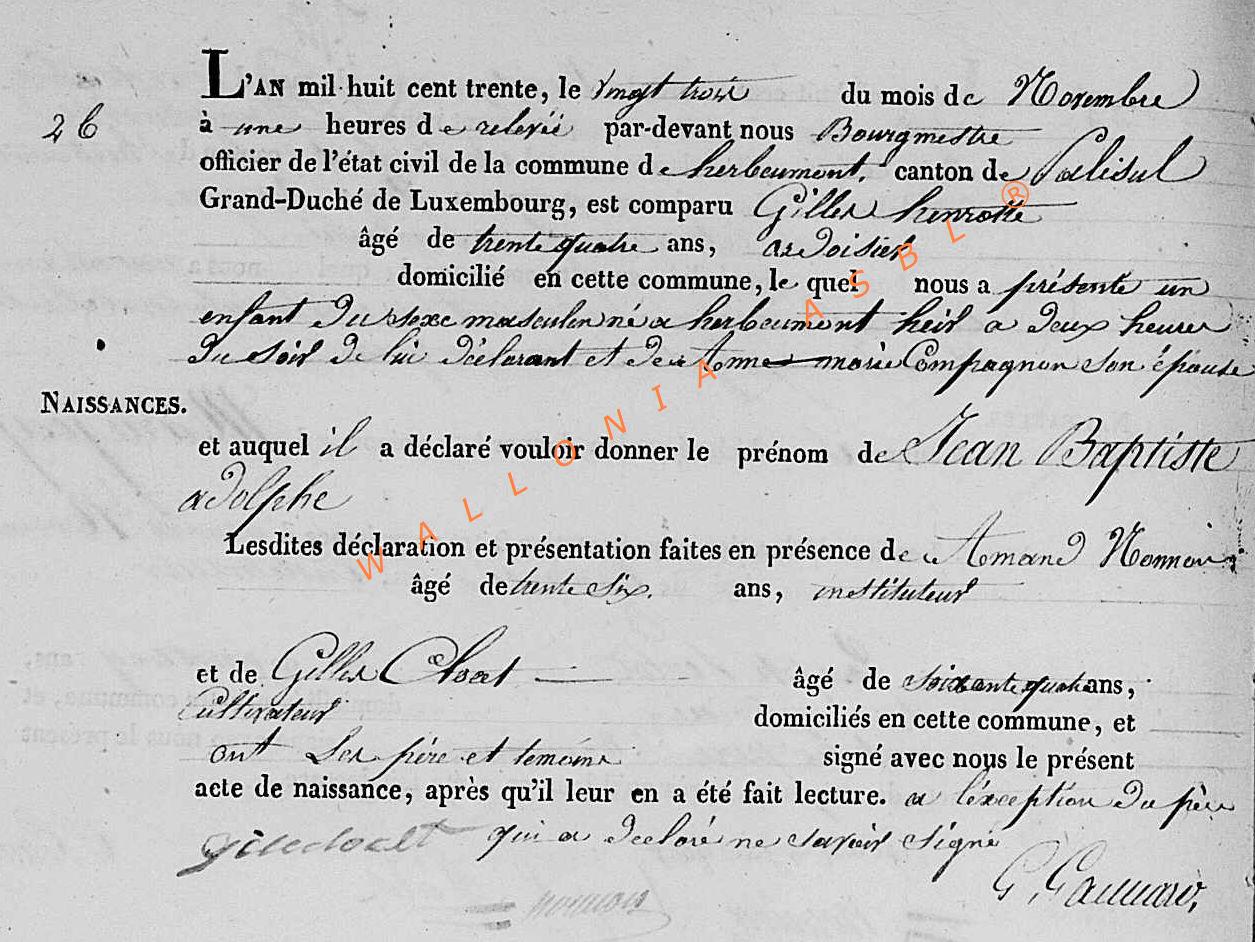 L'AN mil huit cent trente, le vingt trois du mois de Novembre
26
à une heures de relevée par-devant nous Bourgmestre
officier de l'état civil de la commune de herbeumont, canton de Paliseul
Grand-Duché de Luxembourg, est comparu Gilles henrotte
âgé de trente quatre ans, ardoisier
domicilié en cette commune, le quel nous a présenté un
enfant du sexe masculin né a herbeumont heir a deux heures
du soir de lui déclarant et de Anne marie Compagnon son épouse
NAISSANCES.
et auquel il a déclaré vouloir donner le prénom de Jean Baptiste
adolphe
Lesdites déclaration et présentation faites en présence de Amand
âgé de trente six. ans, instituteur
et de Gilles âgé de soixante quatre ans,
Cultivateur domiciliés en cette commune, et
ont Les père et temoins signé avec nous le présent
acte de naissance, après qu'il leur en a été fait lecture. a l'exception du père
qui a declaré ne savoir signé
WALLONIA ASBL ®